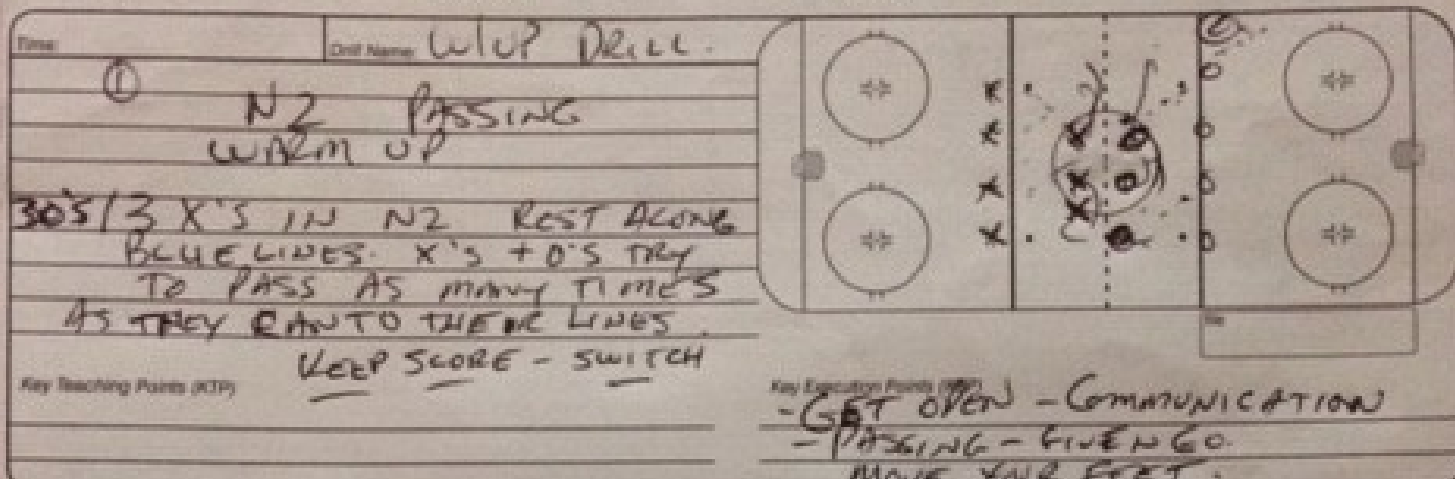 Time: Drill Name: W/UP DRILL.
①
NZ PASSING
WARM UP
30's/3 X'S IN NZ REST ALONG
BLUE LINES. X'S + O'S TRY
TO PASS AS MANY TIMES
AS THEY CAN TO THEIR LINES.
KEEP SCORE - SWITCH
Key Teaching Points (KTP)
Key Execution Points
- GET OPEN - COMMUNICATION
- PASSING - GIVE N GO.
MOVE YOUR FEET.